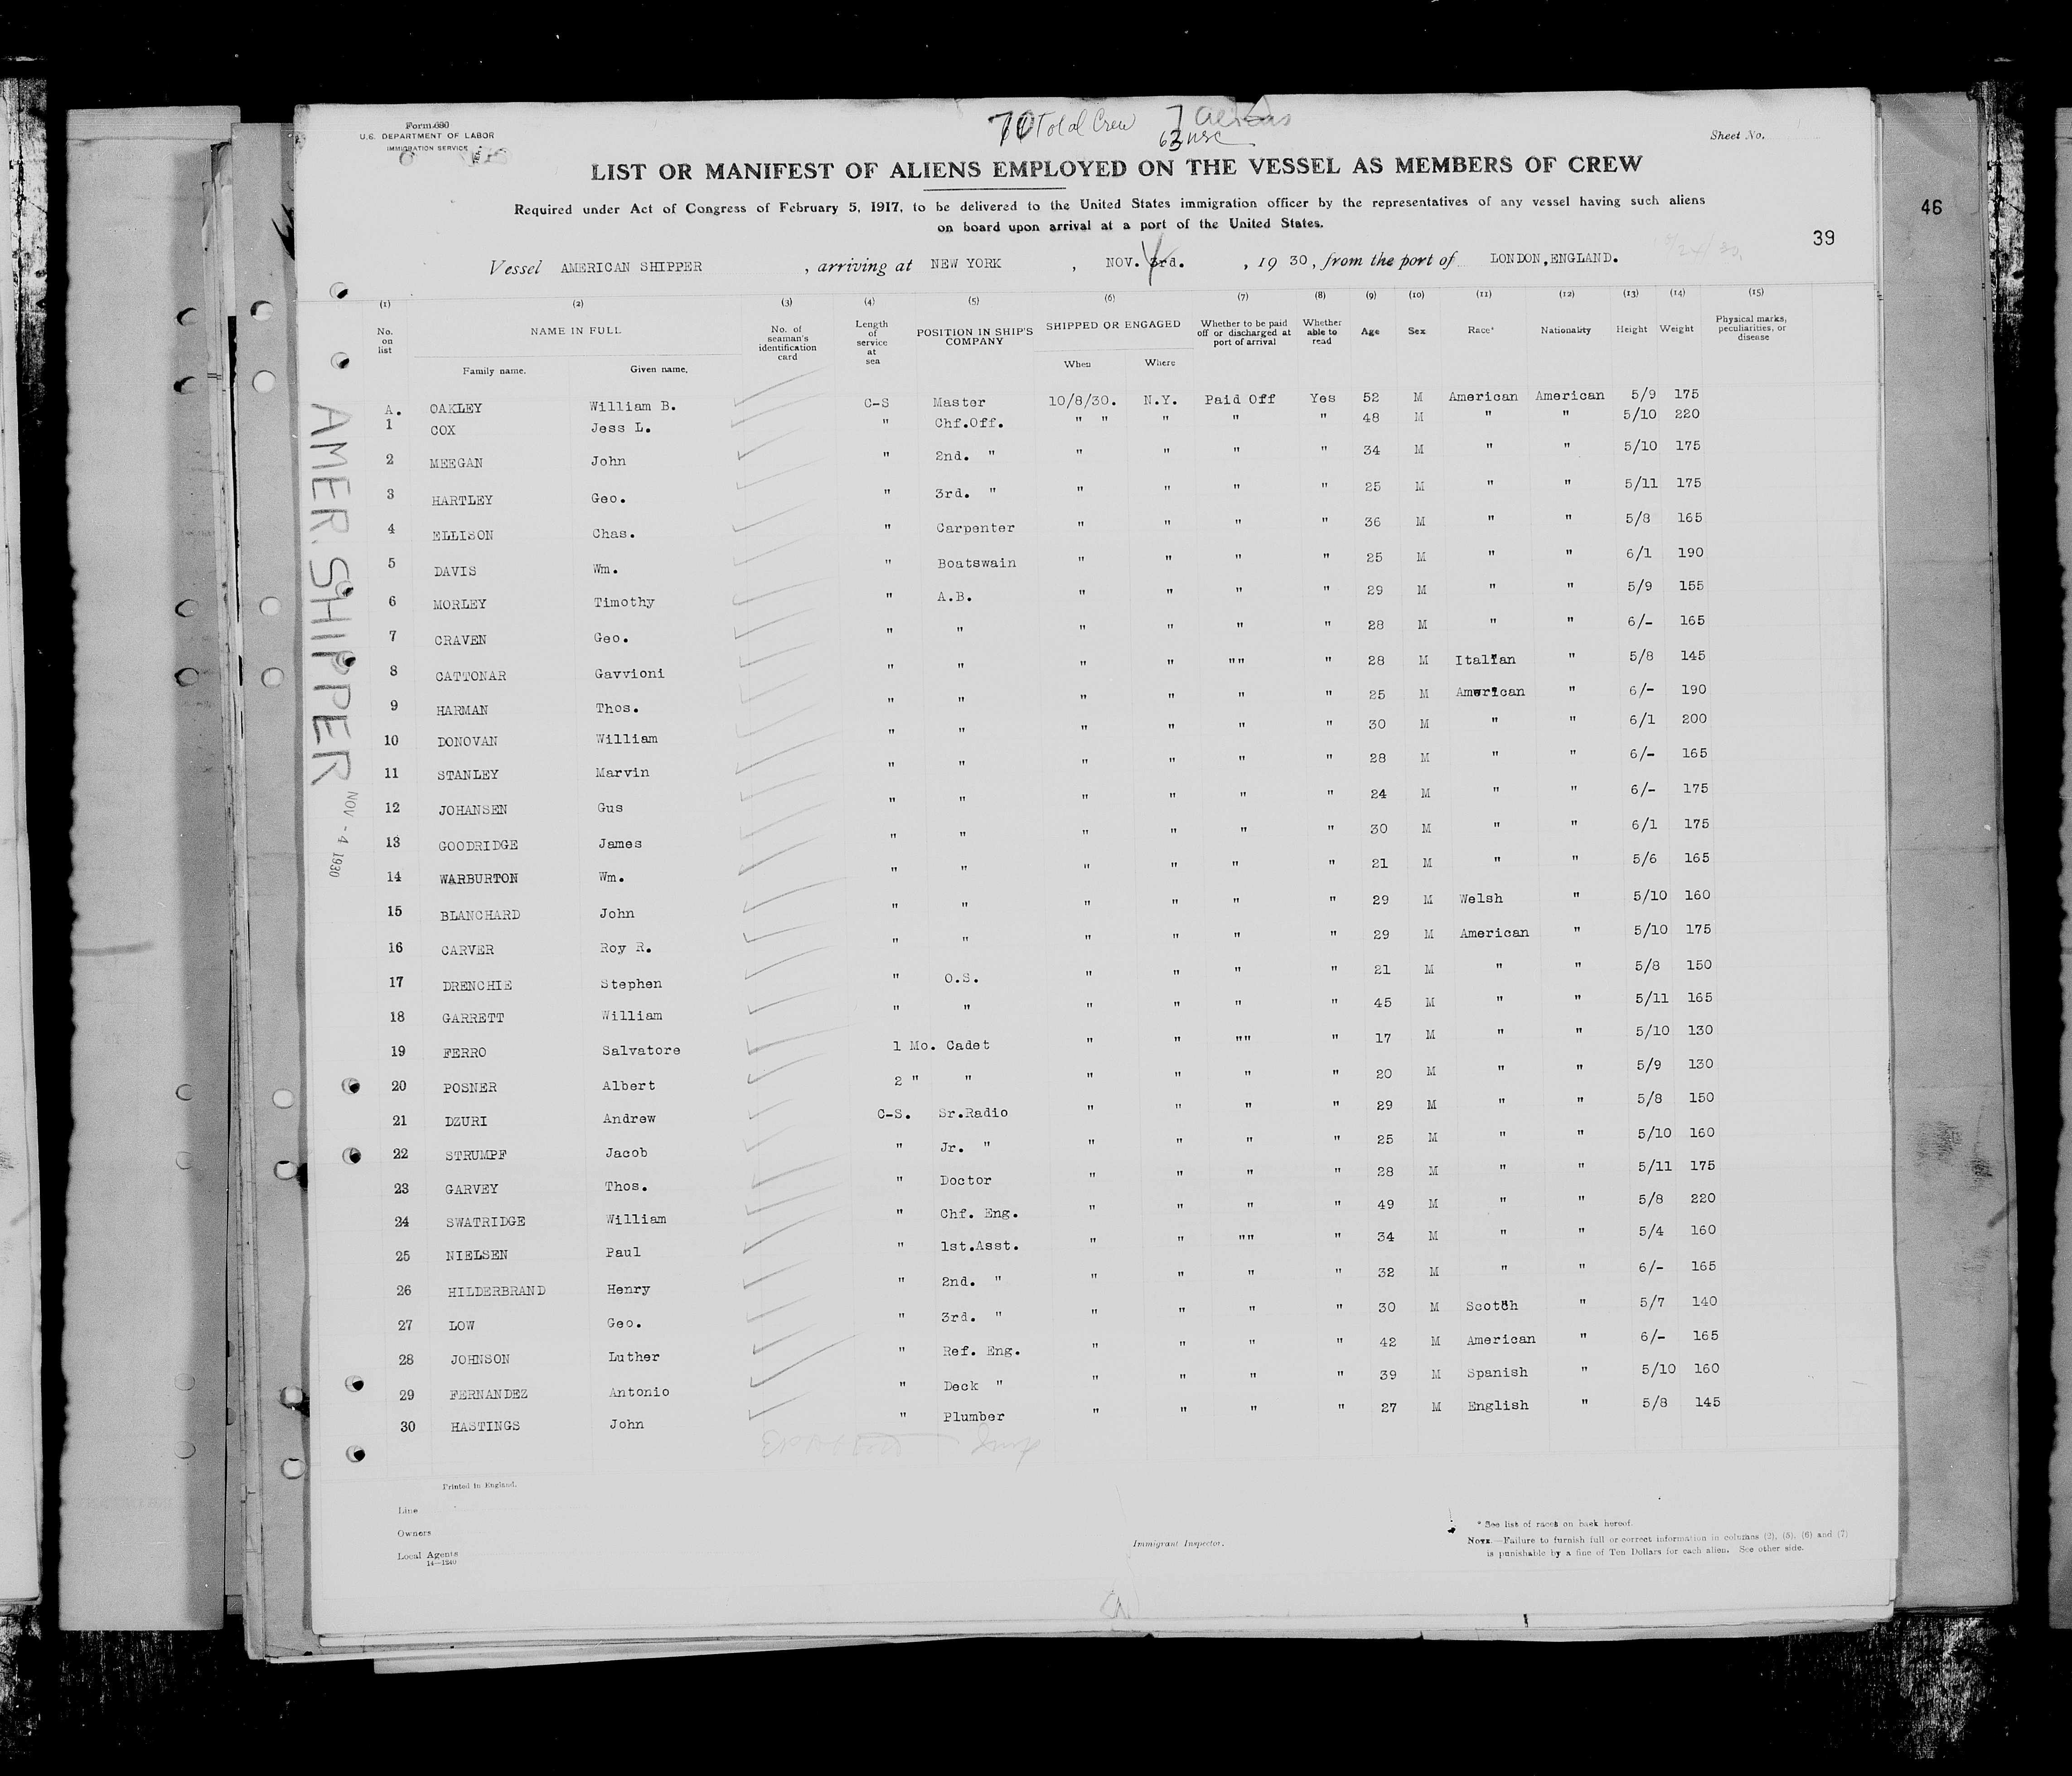 70 Total Crew 7 aliens
63 usc
Form 680
U.S. DEPARTMENT OF LABOR
IMMIGRATION SERVICE
Sheet No.
LIST OR MANIFEST OF ALIENS EMPLOYED ON THE VESSEL AS MEMBERS OF CREW
Required under Act of Congress of February 5, 1917, to be delivered to the United States immigration officer by the representatives of any vessel having such aliens
on board upon arrival at a port of the United States.
46
39
Vessel AMERICAN SHIPPER , arriving at NEW YORK , NOV. 3rd. , 19 30, from the port of LONDON,ENGLAND.
(1) (2) (3) (4) (5) (6) (7) (8) (9) (10) (11) (12) (13) (14) (15)
No. on list NAME IN FULL Family name. Given name. No. of seaman's identification card Length of service at sea POSITION IN SHIP'S COMPANY SHIPPED OR ENGAGED When Where Whether to be paid off or discharged at port of arrival Whether able to read Age Sex Race* Nationality Height Weight Physical marks, peculiarities, or disease
A. OAKLEY William B. C-S Master 10/8/30. N.Y. Paid Off Yes 52 M American American 5/9 175
1 COX Jess L. " Chf.Off. " " " " " 48 M " " 5/10 220
2 MEEGAN John " 2nd. " " " " " 34 M " " 5/10 175
3 HARTLEY Geo. " 3rd. " " " " " 25 M " " 5/11 175
4 ELLISON Chas. " Carpenter " " " " 36 M " " 5/8 165
5 DAVIS Wm. " Boatswain " " " " 25 M " " 6/1 190
6 MORLEY Timothy " A.B. " " " " 29 M " " 5/9 155
7 CRAVEN Geo. " " " " " " 28 M " " 6/- 165
8 CATTONAR Gavvioni " " " " "" " 28 M Italian " 5/8 145
9 HARMAN Thos. " " " " " " 25 M American " 6/- 190
10 DONOVAN William " " " " " " 30 M " " 6/1 200
11 STANLEY Marvin " " " " " " 28 M " " 6/- 165
12 JOHANSEN Gus " " " " " " 24 M " " 6/- 175
13 GOODRIDGE James " " " " " " 30 M " " 6/1 175
14 WARBURTON Wm. " " " " " " 21 M " " 5/6 165
15 BLANCHARD John " " " " " " 29 M Welsh " 5/10 160
16 CARVER Roy R. " " " " " " 29 M American " 5/10 175
17 DRENCHIE Stephen " O.S. " " " " 21 M " " 5/8 150
18 GARRETT William " " " " " " 45 M " " 5/11 165
19 FERRO Salvatore 1 Mo. Cadet " " "" " 17 M " " 5/10 130
20 POSNER Albert 2 " " " " " " 20 M " " 5/9 130
21 DZURI Andrew C-S. Sr.Radio " " " " 29 M " " 5/8 150
22 STRUMPF Jacob " Jr. " " " " " 25 M " " 5/10 160
23 GARVEY Thos. " Doctor " " " " 28 M " " 5/11 175
24 SWATRIDGE William " Chf. Eng. " " " " 49 M " " 5/8 220
25 NIELSEN Paul " 1st.Asst. " " "" " 34 M " " 5/4 160
26 HILDERBRAND Henry " 2nd. " " " " " 32 M " " 6/- 165
27 LOW Geo. " 3rd. " " " " " 30 M Scotch " 5/7 140
28 JOHNSON Luther " Ref. Eng. " " " " 42 M American " 6/- 165
29 FERNANDEZ Antonio " Deck " " " " " 39 M Spanish " 5/10 160
30 HASTINGS John " Plumber " " " " 27 M English " 5/8 145
AMER. SHIPPER
NOV - 4 1930
Printed in England.
Line
Owners
Local Agents
14-1240
Immigrant Inspector.
* See list of races on back hereof.
NOTE.—Failure to furnish full or correct information in columns (2), (5), (6) and (7)
is punishable by a fine of Ten Dollars for each alien. See other side.